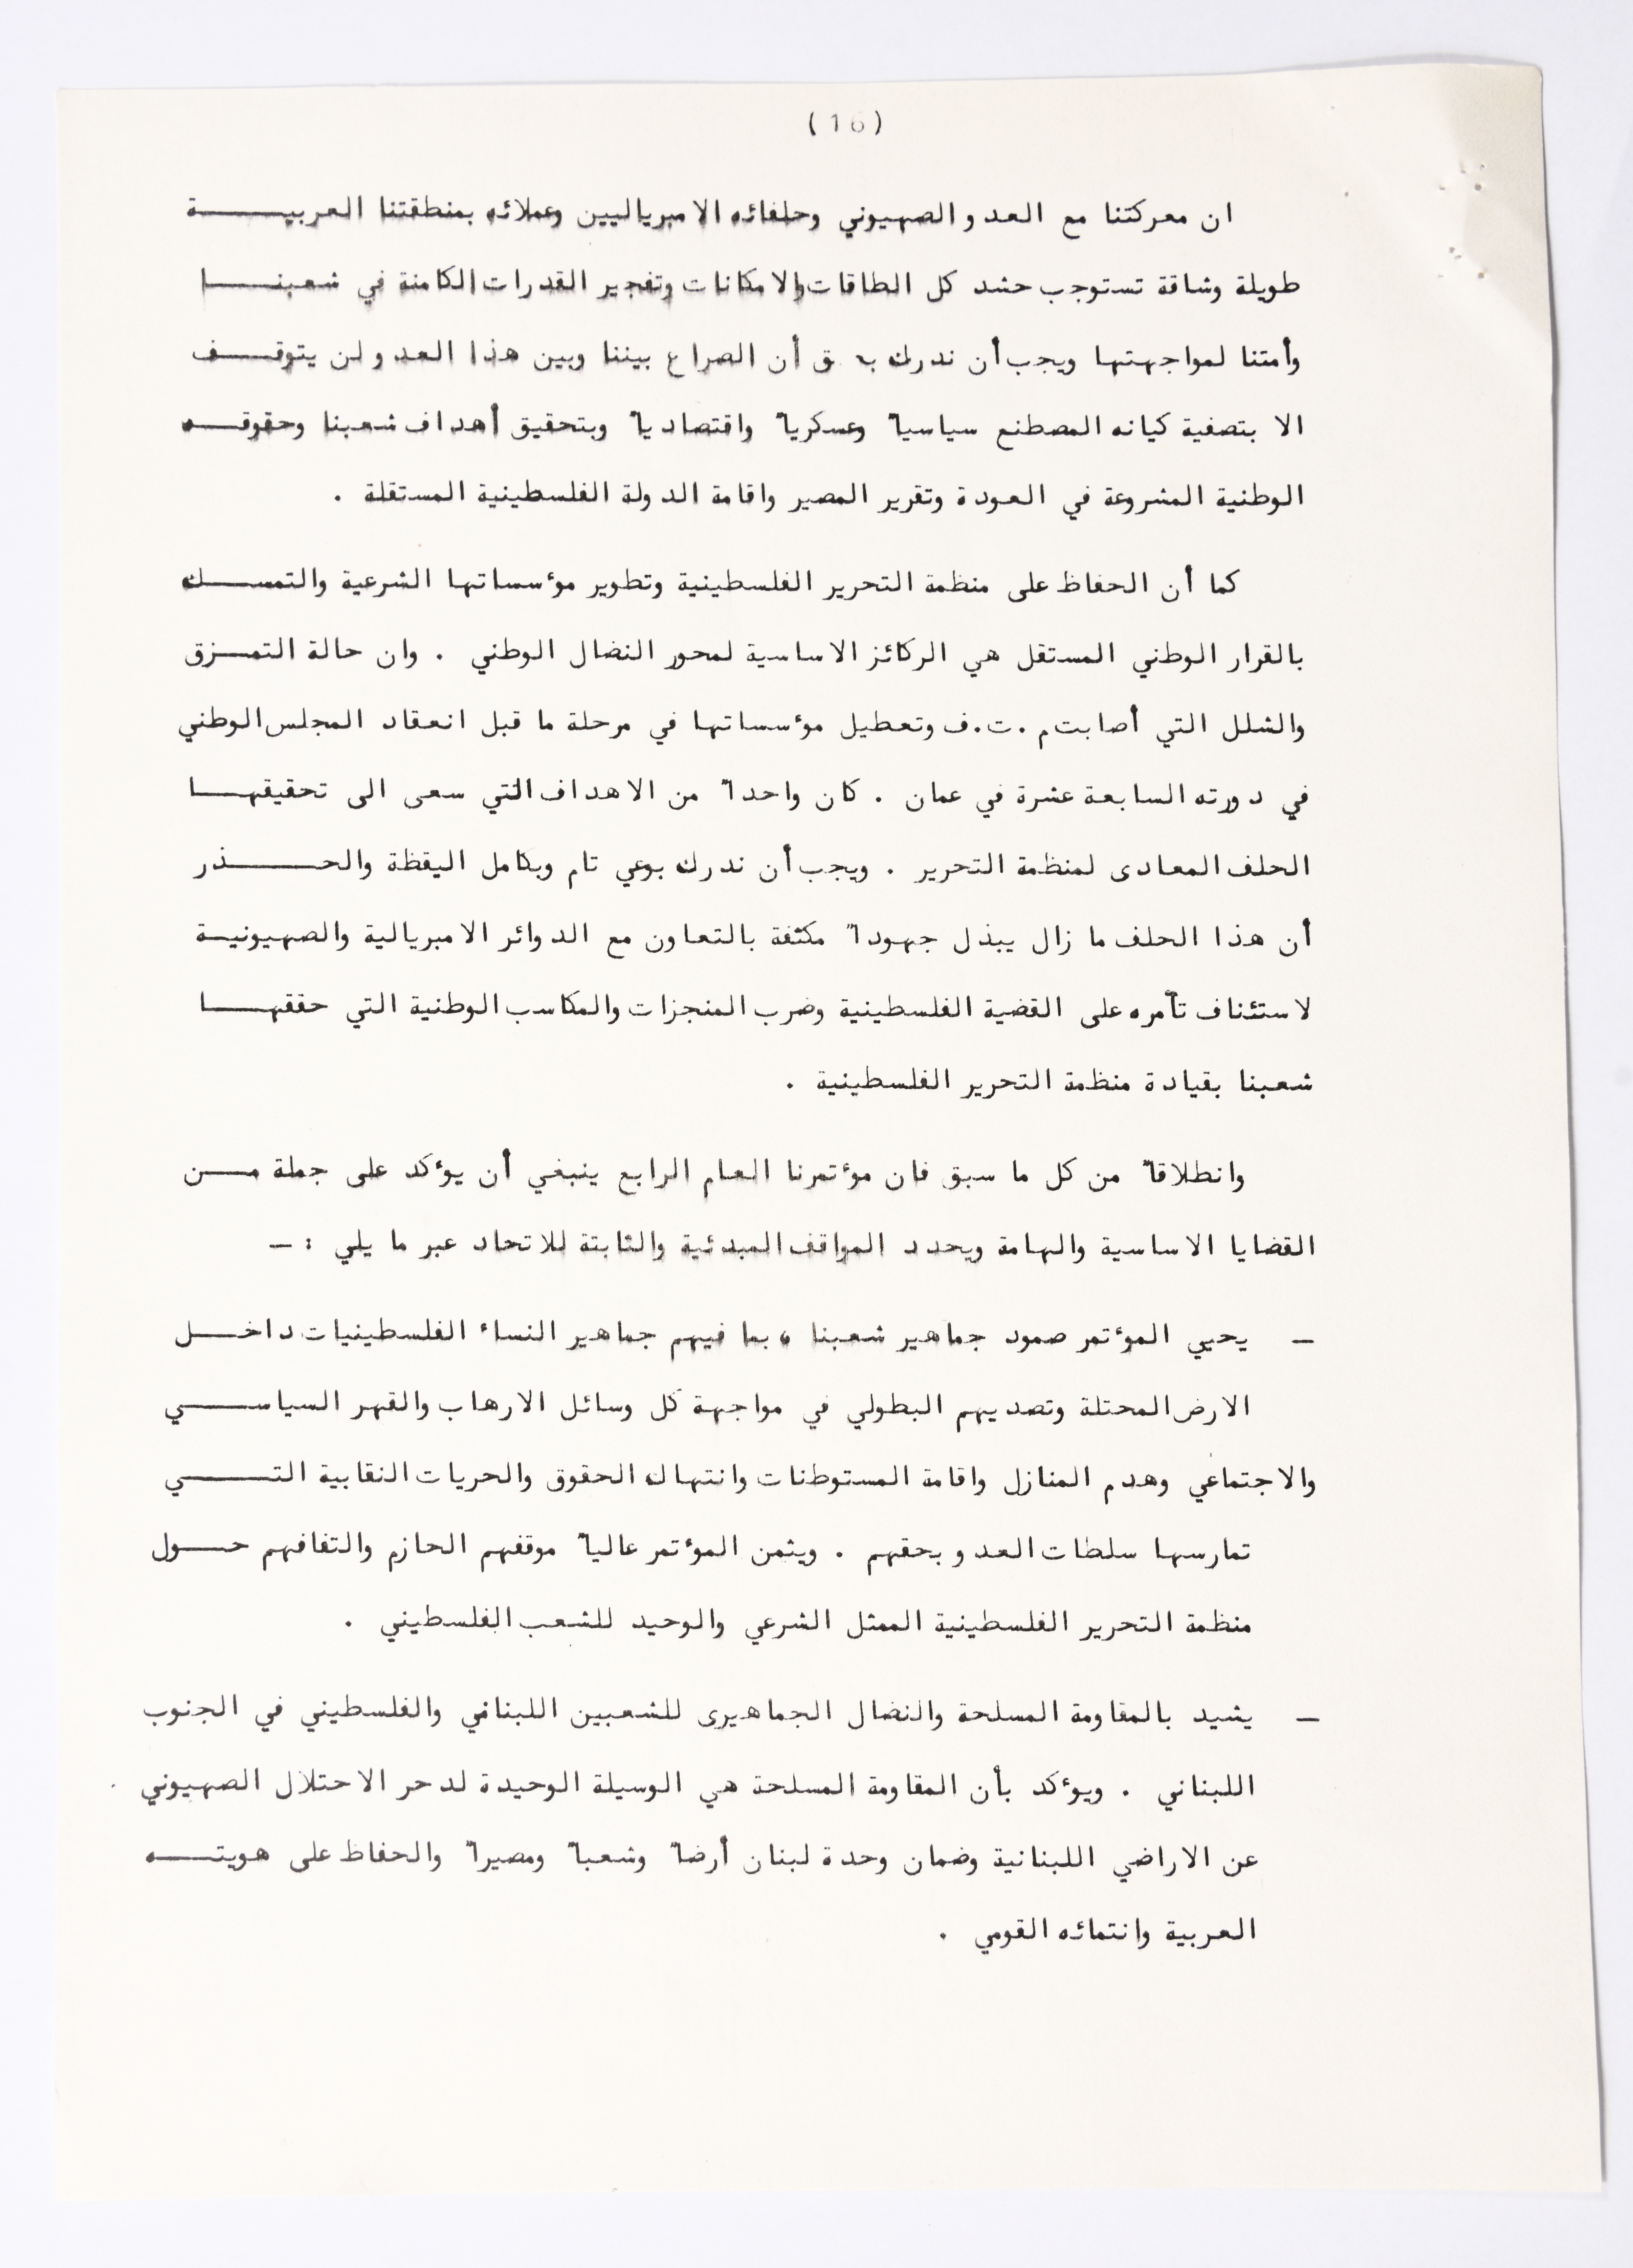 ( 16 )
ان معركتنا مع العدو الصهيوني وحلفائه الامبرياليين وعملائه بمنطقتنا العربيـــــة
طويلة وشاقة تستوجب حشد كل الطاقات والامكانات وتفجير القدرات الكامنة في شعبنــــا
وأمتنا لمواجهتها ويجب أن ندرك ق أن الصراع بيننا وبين هذا العدو لن يتوقـــف
الا بتصفية كيانه المصطنع سياسياً وعسكرياً واقتصادياً وبتحقيق أهداف شعبنا وحقوقــه
الوطنية المشروعة في العودة وتقرير المصير واقامة الدولة الفلسطينية المستقلة .
كما أن الحفاظ على منظمة التحرير الفلسطينية وتطوير مؤسساتها الشرعية والتمســـك
بالقرار الوطني المستقل هي الركائز الاساسية لمحور النضال الوطني . وان حالة التمــزق
والشلل التي أصابت م.ت.ف وتعطيل مؤسساتها في مرحلة ما قبل انعقاد المجلس الوطني
في دورته السابعة عشرة في عمان . كان واحداً من الاهداف التي سعى الى تحقيقهـــا
الحلف المعادى لمنظمة التحرير . ويجب أن ندرك بوعي تام وبكامل اليقظة والحـــــذر
أن هذا الحلف ما زال يبذل جهوداً مكثفة بالتعاون مع الدوائر الامبريالية والصهيونيــة
لاستئناف تآمره على القضية الفلسطينية وضرب المنجزات والمكاسب الوطنية التي حققهـــا
شعبنا بقيادة منظمة التحرير الفلسطينية .
وانطلاقاً من كل ما سبق فان مؤتمرنا العام الرابع ينبغي أن يؤكد على جملة مـــن
القضايا الاساسية والهامة ويحدد المواقف المبدئية والثابتة للاتحاد عبر ما يلي : ــ
ــ يحيي المؤتمر صمود جماهير شعبنا ، بما فيهم جماهير النساء الفلسطينيات داخـــل
الارض المحتلة وتصديهم البطولي في مواجهة كل وسائل الارهاب والقهر السياســـي
والاجتماعي وهدم المنازل واقامة المستوطنات وانتهاك الحقوق والحريات النقابية التـــــي
تمارسها سلطات العدو بحقهم . ويثمن المؤتمر عالياً موقفهم الحازم والتفافهم حـــول
منظمة التحرير الفلسطينية الممثل الشرعي والوحيد للشعب الفلسطيني .
ــ يشيد بالمقاومة المسلحة والنضال الجماهيرى للشعبين اللبناني والفلسطيني في الجنوب
اللبناني . ويؤكد بأن المقاومة المسلحة هي الوسيلة الوحيدة لدحر الاحتلال الصهيوني
عن الاراضي اللبنانية وضمان وحدة لبنان أرضاً وشعباً ومصيراً والحفاظ على هويتـــه
العربية وانتمائه القومي .